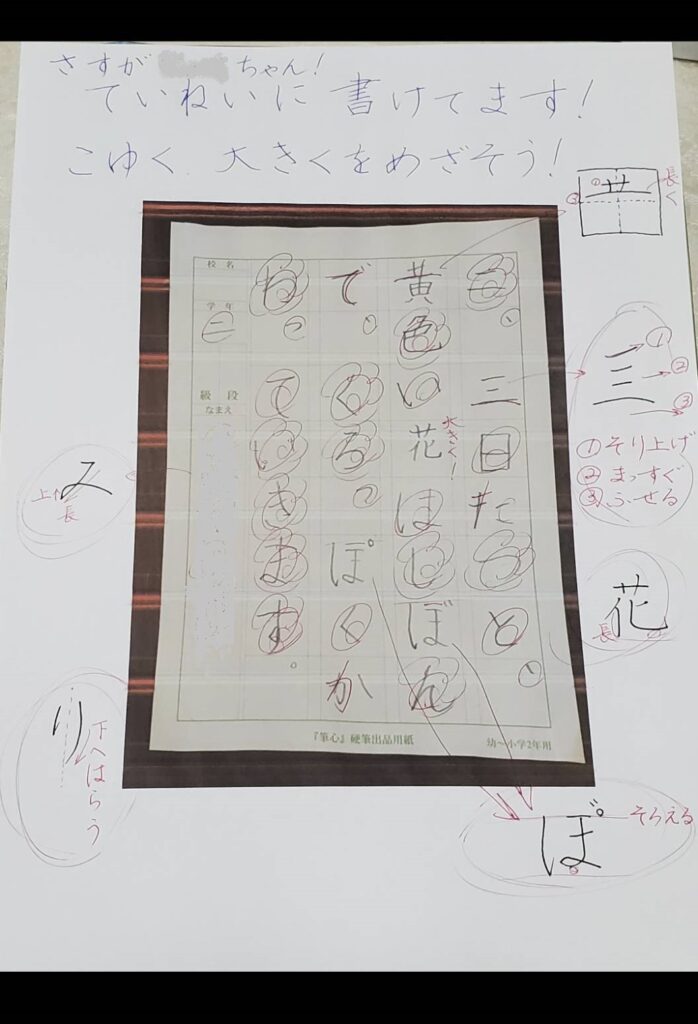 さすが
ちゃん!
ていねいに 書けてます!
こゆく、大きくをめざそう!
二、三日たつと、
黄色い花はしぼん
で、くろっぽくか
わっていきます。
大きく!
校名
学年
二
級 段
なまえ
『筆心』硬筆出品用紙
幼〜小学2年用
長く
三
① ② ③
①そり上げ
②まっすぐ
③ふせる
花
長
ぼ
そろえる
み
長
り
下へはらう